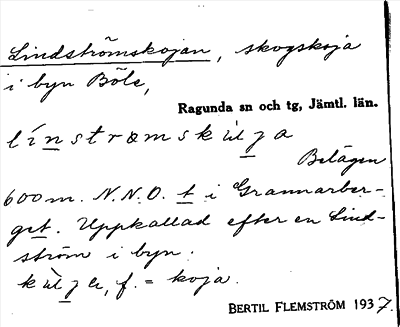 Lindströmskojan, skogskoja
i byn Böle,
Ragunda sn och tg, Jämtl. län.
línstrømskùlya
Belägen
600 m. N.N.O. t i Grannarber-
get. Uppkallad efter en Lind-
ström i byn.
f. = koja.
BERTIL FLEMSTRÖM 1937.